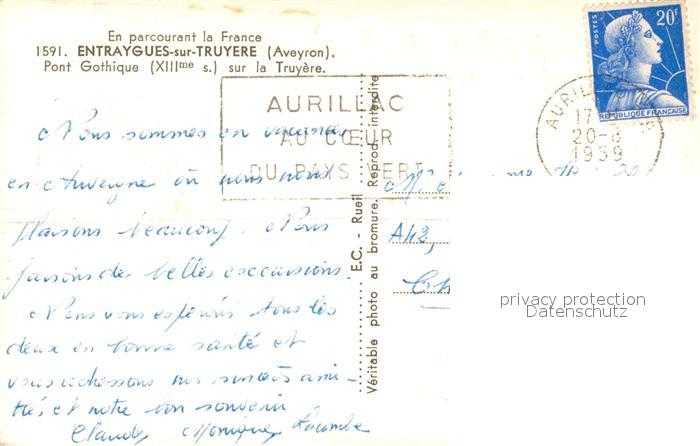 En parcourant la France
1591. ENTRAYGUES-sur-TRUYERE (Aveyron).
Pont Gothique (XIIIme s.) sur la Truyère.
POSTES 20F
REPUBLIQUE FRANÇAISE
AURILLAC
AU CŒUR
DU PAYS VERT
AURILLAC
17
20-
1959
Nous sommes en vacances
en Auvergne où nous nous
plaisons beaucoup. Nous
faisons de belles excursions.
Nous vous espérons tous les
deux en bonne santé et
vous adressons nos sincères ami-
tiés, et notre bon souvenir
Claude, Monique, Lacombe
E.C. - Rueil
Véritable photo au bromure. Reprod. interdite
A42,
privacy protection
Datenschutz